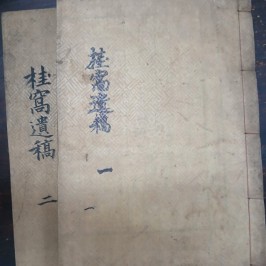 桂窩遺稿 一
一
桂窩遺稿 二